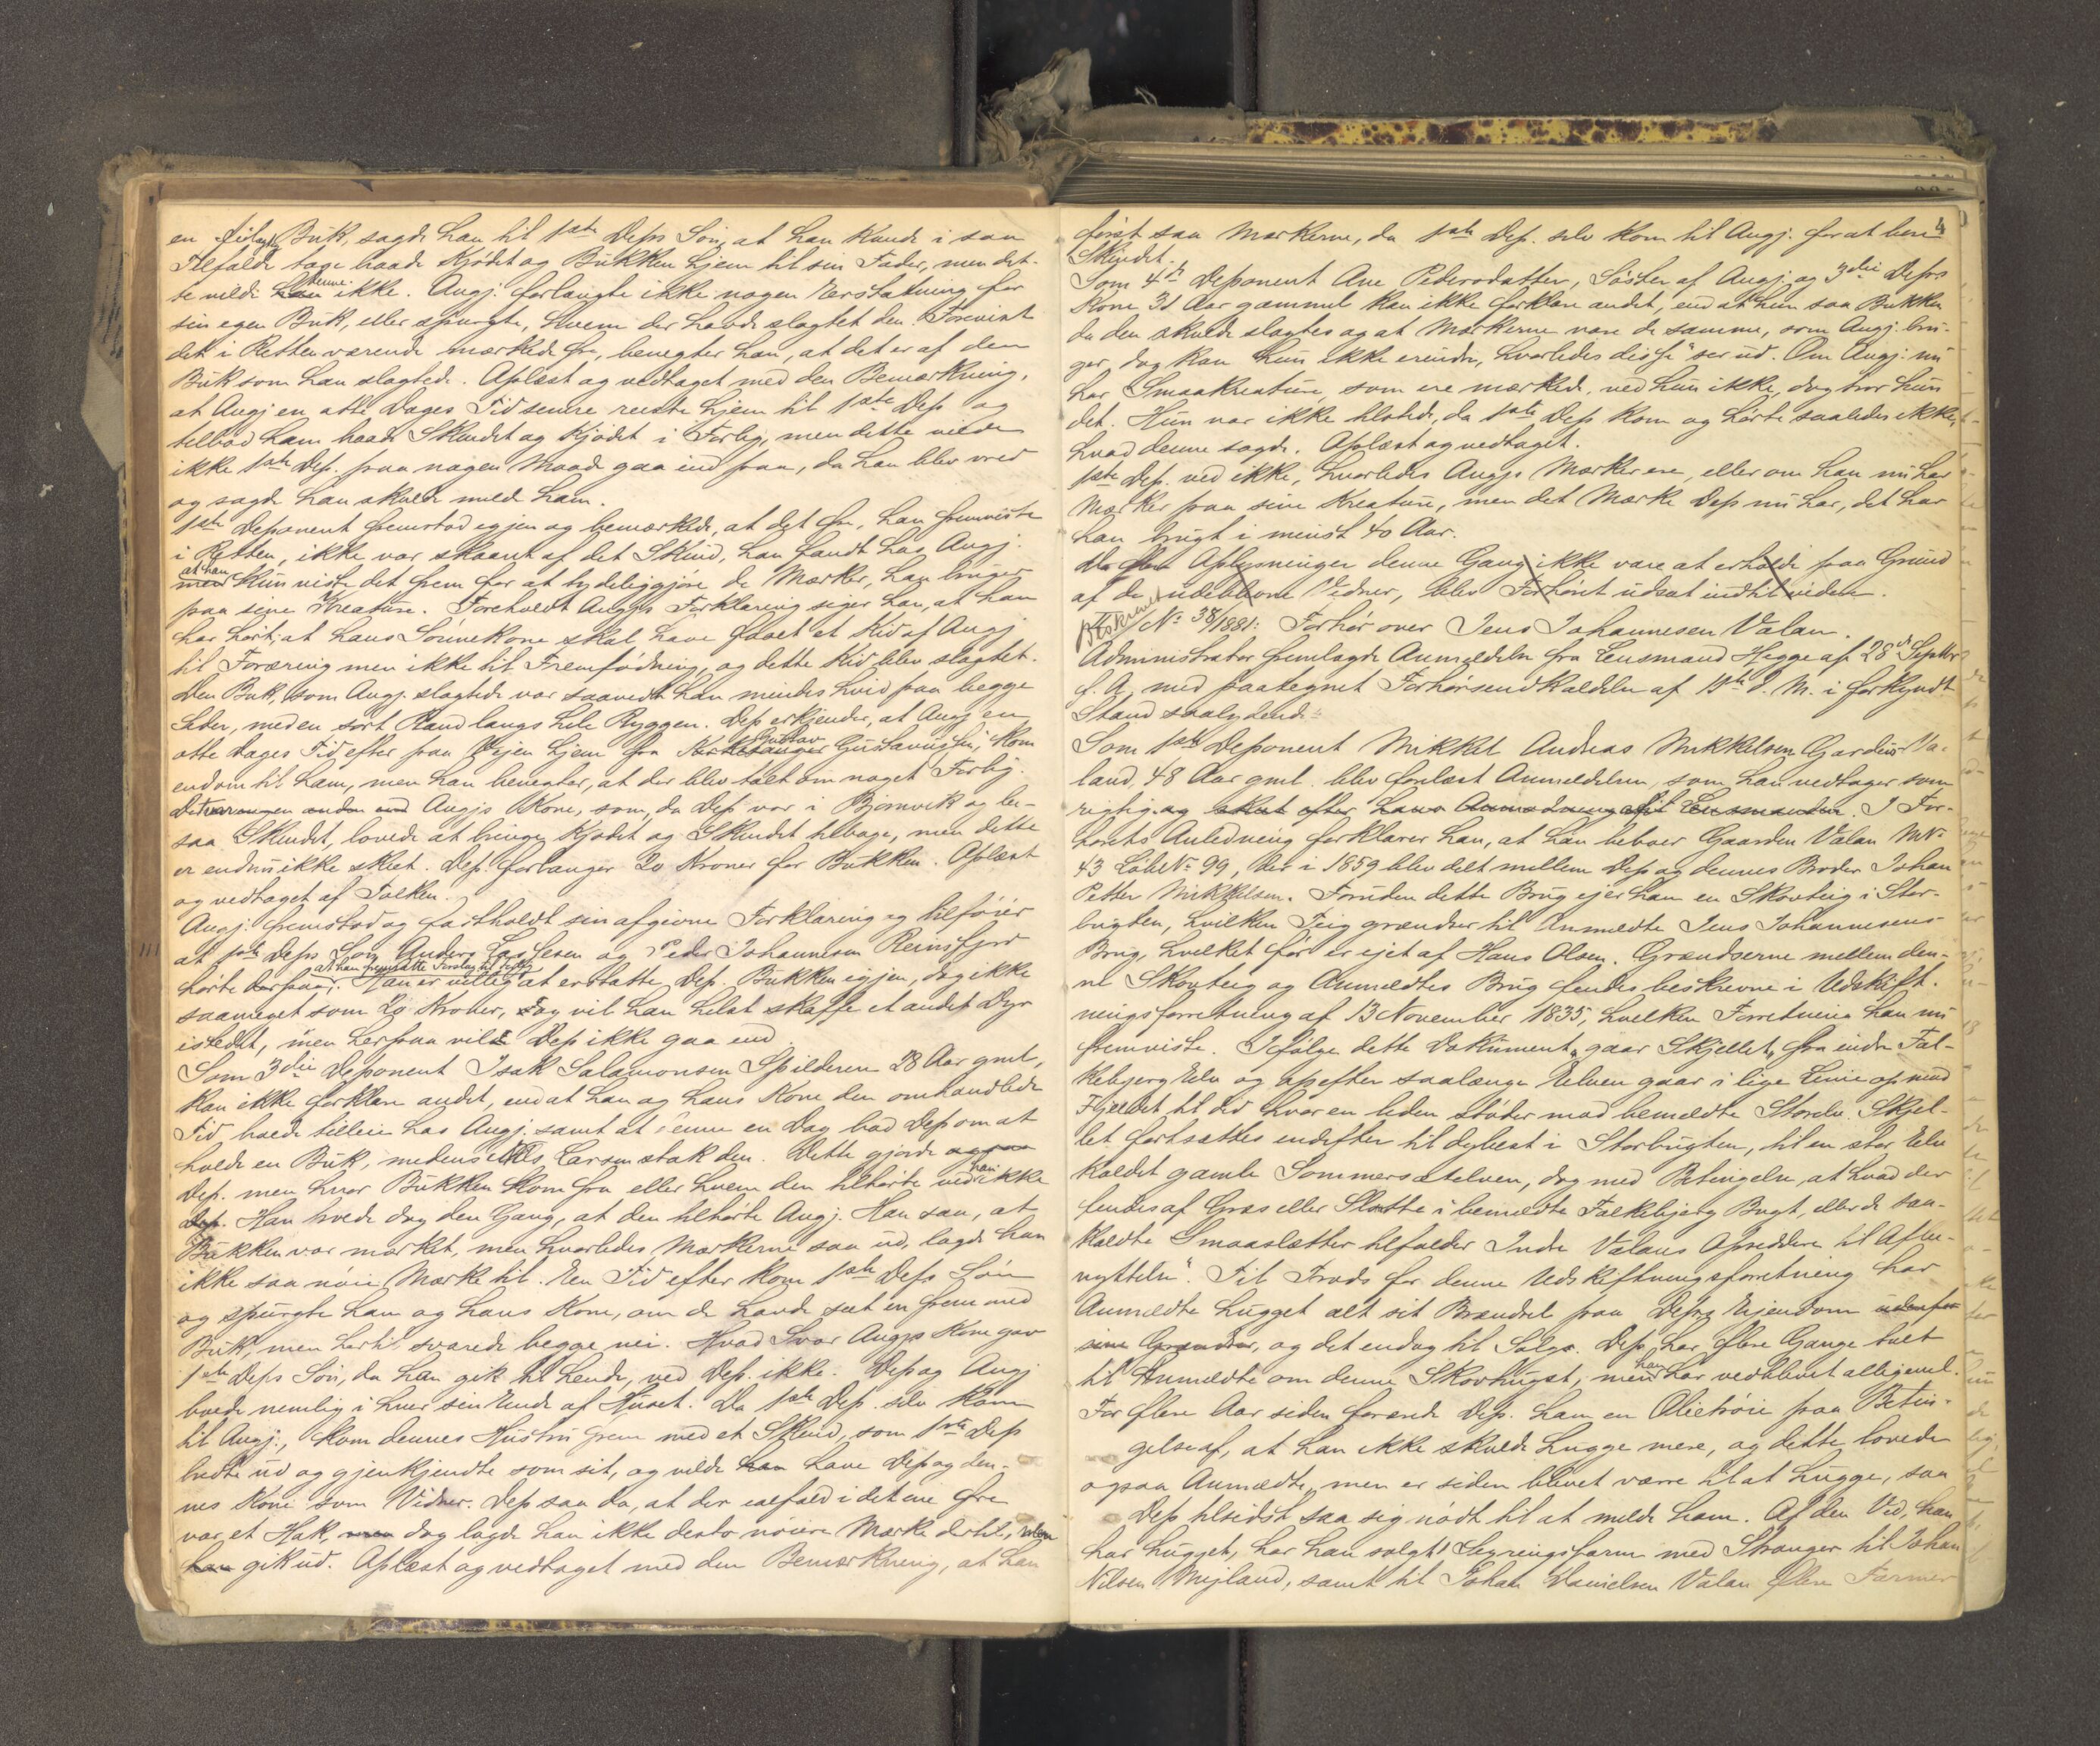 en Buk, sagde han til 1ste Deps Søn, at han kunde i saa
Tilfælde tage baade Kjødet og Bukken hjem til sin Fader, men det-
te vilde denne ikke. Angj. forlangte ikke nogen Erstatning for
sin egen Buk, eller spurgte, hvem der havde slagtet den. Forevist
det i Retten værende mærkede Øre, benegter han, at det er af den
Buk som han slagtede. Oplæst og vedtaget med den Bemærkning,
at Angj en otte Dages Tid senere reiste hjem til 1ste Dep og
tilbød ham baade Skindet og Kjødet i Forlig, men dette vilde
ikke 1ste Dep. paa nogen Maade gaa ind paa, da han blev vred
og sagde han skulde melde ham.
1ste Deponent fremstod igjen og bemærkede, at det Øre, han fremviste
i Retten, ikke var skaaret af det Skind, han fandt hos Angj.
men at han kun viste det frem for at tydeliggjøre de Mærker, han bruger
paa sine Kreature. Foreholdt Angjs Forklaring siger han, at han
har hørt, at hans Sønnekone skal have faaet et Kid af Angj
til Foræring men ikke til Fremfødning, og dette Kid blev slagtet.
Den Buk, som Angj. slagtede var saavidt han mindes hvid paa begge
Sider, med en sort Rand langs hele Ryggen. Dep erkjender, at Angj en
otte Dages Tid efter paa Veien hjem fra Gustav Gustavussen, kom
endom til ham, men han benegter, at der blev talt om noget Forlig.
Det var ingen anden end Angjs Kone, som, da Dep var i Bjørnvik og be-
saa Skindet, lovede at bringe Kjødet og Skindet tilbage, men dette
er endnu ikke skeet. Dep. forlanger 20 Kroner for Bukken. Oplæst
og vedtaget af Tolken.
Angj. fremstod og fastholdt sin afgivne Forklaring og tilføier
at 1ste Deps Søn Anders Larssen og Peder Johannesen Reinsfjord
hørte at han fremsatte Forslag til Forlig. Han er villig at erstatte Dep. Bukken igjen, dog ikke
saameget som 20 Kroner, dog vil han helst skaffe et andet Dyr
istedet, men herpaa vilde Dep ikke gaa ind.
Som 3die Deponent Isak Salamonsen Spilderen 28 Aar gml,
kan ikke forklare andet, end at han og hans Kone den omhandlede
Tid boede tilleie hos Angj. samt at denne en Dag bad Dep om at
holde en Buk, medens Nils Larsen stak den. Dette gjorde ogsaa
Dep. men hvor Bukken kom fra eller hvem den tilhørte ved han ikke
Dep. Han troede dog den Gang, at den tilhørte Angj. Han saa, at
Bukken var mærket, men hvorledes Mærkerne saa ud, lagde han
ikke saa nøie Mærke til. En Tid efter kom 1ste Deps Søn
og spurgte ham og hans Kone, om de havde seet en fremmed
Buk, men hertil svarede begge nei. Hvad Svar Angjs Kone gav
1ste Deps Søn, da han gik til hende, ved Dep. ikke. Dep og Angj
boede nemlig i hver sin Ende af Huset. Da 1ste Dep. selv kom
til Angj., kom dennes Hustru frem med et Skind, som 1ste Dep
bredte ud og gjenkjendte som sit, og vilde han have Dep og den-
nes Kone som Vidner. Dep saa da, at der ialfald i det ene Øre
var et Hak, men dog lagde han ikke desto nøiere Mærke dertil, men
han gik ud. Oplæst og vedtaget med den Bemærkning, at han
4
først saa Mærkerne, da 1ste Dep. selv kom til Angj. for at bese
Skindet.
Som 4de Deponent Ane Pedersdatter, Søster af Angj. og 3die Deps
Kone 31 Aar gammel kan ikke forklare andet, end at hun saa Bukken
da den skulde slagtes og at Mærkerne vare de samme, som Angj. bru-
ger, dog kan hun ikke erindre, hvorledes disse ser ud. Om Angj. nu
har Smaakreature, som ere mærkede, ved hun ikke, dog tror hun
det. Hun var ikke tilstede, da 1ste Dep kom og hørte saaledes ikke,
hvad denne sagde. Oplæst og vedtaget.
1ste Dep. ved ikke, hvorledes Angjs Mærker ere, eller om han nu har
Mærker paa sine Kreature, men det Mærke Dep nu har, det har
han brugt i mindst 40 Aar.
Da flere Oplysninger denne Gang ikke vare at erholde paa Grund
af de udeblevne Vidner, blev Forhøret udsat indtil videre.
Beskrevet
No 38/1881: Forhør over Jens Johannesen Valan.
Administrator fremlagde Anmeldelse fra Lensmand Hegge af 28de Septbr
f. A. med paategnet Forhørsindkaldelse af 10de d. M. i forkyndt
Stand saalydende:
Som 1ste Deponent Mikkel Andreas Mikkelsen Gardeier Va-
land, 48 Aar gml. blev forelæst Anmeldelsen, som han vedtager som
rigtig og skeet efter hans Anmodning til Lensmanden. I For-
hørets Anledning forklarer han, at han beboer Gaarden Valan MNo
43 LøbeNo 99, der i 1859 blev delt mellem Dep og dennes Broder Johan
Petter Mikkelsen. Foruden dette Brug ejer han en Skovteig i Stor-
bugten, hvilken Teig grændser til Anmeldte Jens Johannesens
Brug, hvilket før er ejet af Hans Olsen. Grændserne mellem den-
ne Skovteig og Anmeldtes Brug findes beskrevne i Udskift-
ningsforretning af 13 November 1835, hvilken Forretning han nu
fremviste. Ifølge dette Dokument „gaar Skjellet, fra indre Fal-
kebjerg Elv og opefter saalænge Elven gaar i lige Linie op mod
Fjeldet til did hvor en liden støder mod bemeldte Storelv. Skjel-
let fortsættes endefter til dybest i Storbugten, til en stor Elv
kaldet gamle Sommersætelven, dog med Betingelse, at hvad der
findes af Græs eller Slaatte i bemeldte Falkebjerg Bugt, eller de saa-
kaldte Smaaslætter tilfalder Indre Valans Opsiddere til Afbe-
nyttelse". Til Trods for denne Udskiftningsforretning har
Anmeldte hugget alt sit Brændsel paa Deps Eiendom udenfor
sine Grændser, og det endog til Salgs. Dep har flere Gange talt
til Anmeldte om denne Skovhugst, men han har vedblevet alligevel.
For flere Aar siden forærede Dep. ham en Olietrøie paa Betin-
gelse af, at han ikke skulde hugge mere, og dette lovede
ogsaa Anmeldte, men er siden blevet værre til at hugge, saa
Dep tilsidst saa sig nødt til at melde ham. Af den Ved, han
har hugget, har han solgt 1 Legringsfarm med Stranger til Johan
Nilsen Mejland, samt til Johan Danielsen Valan flere Farmer